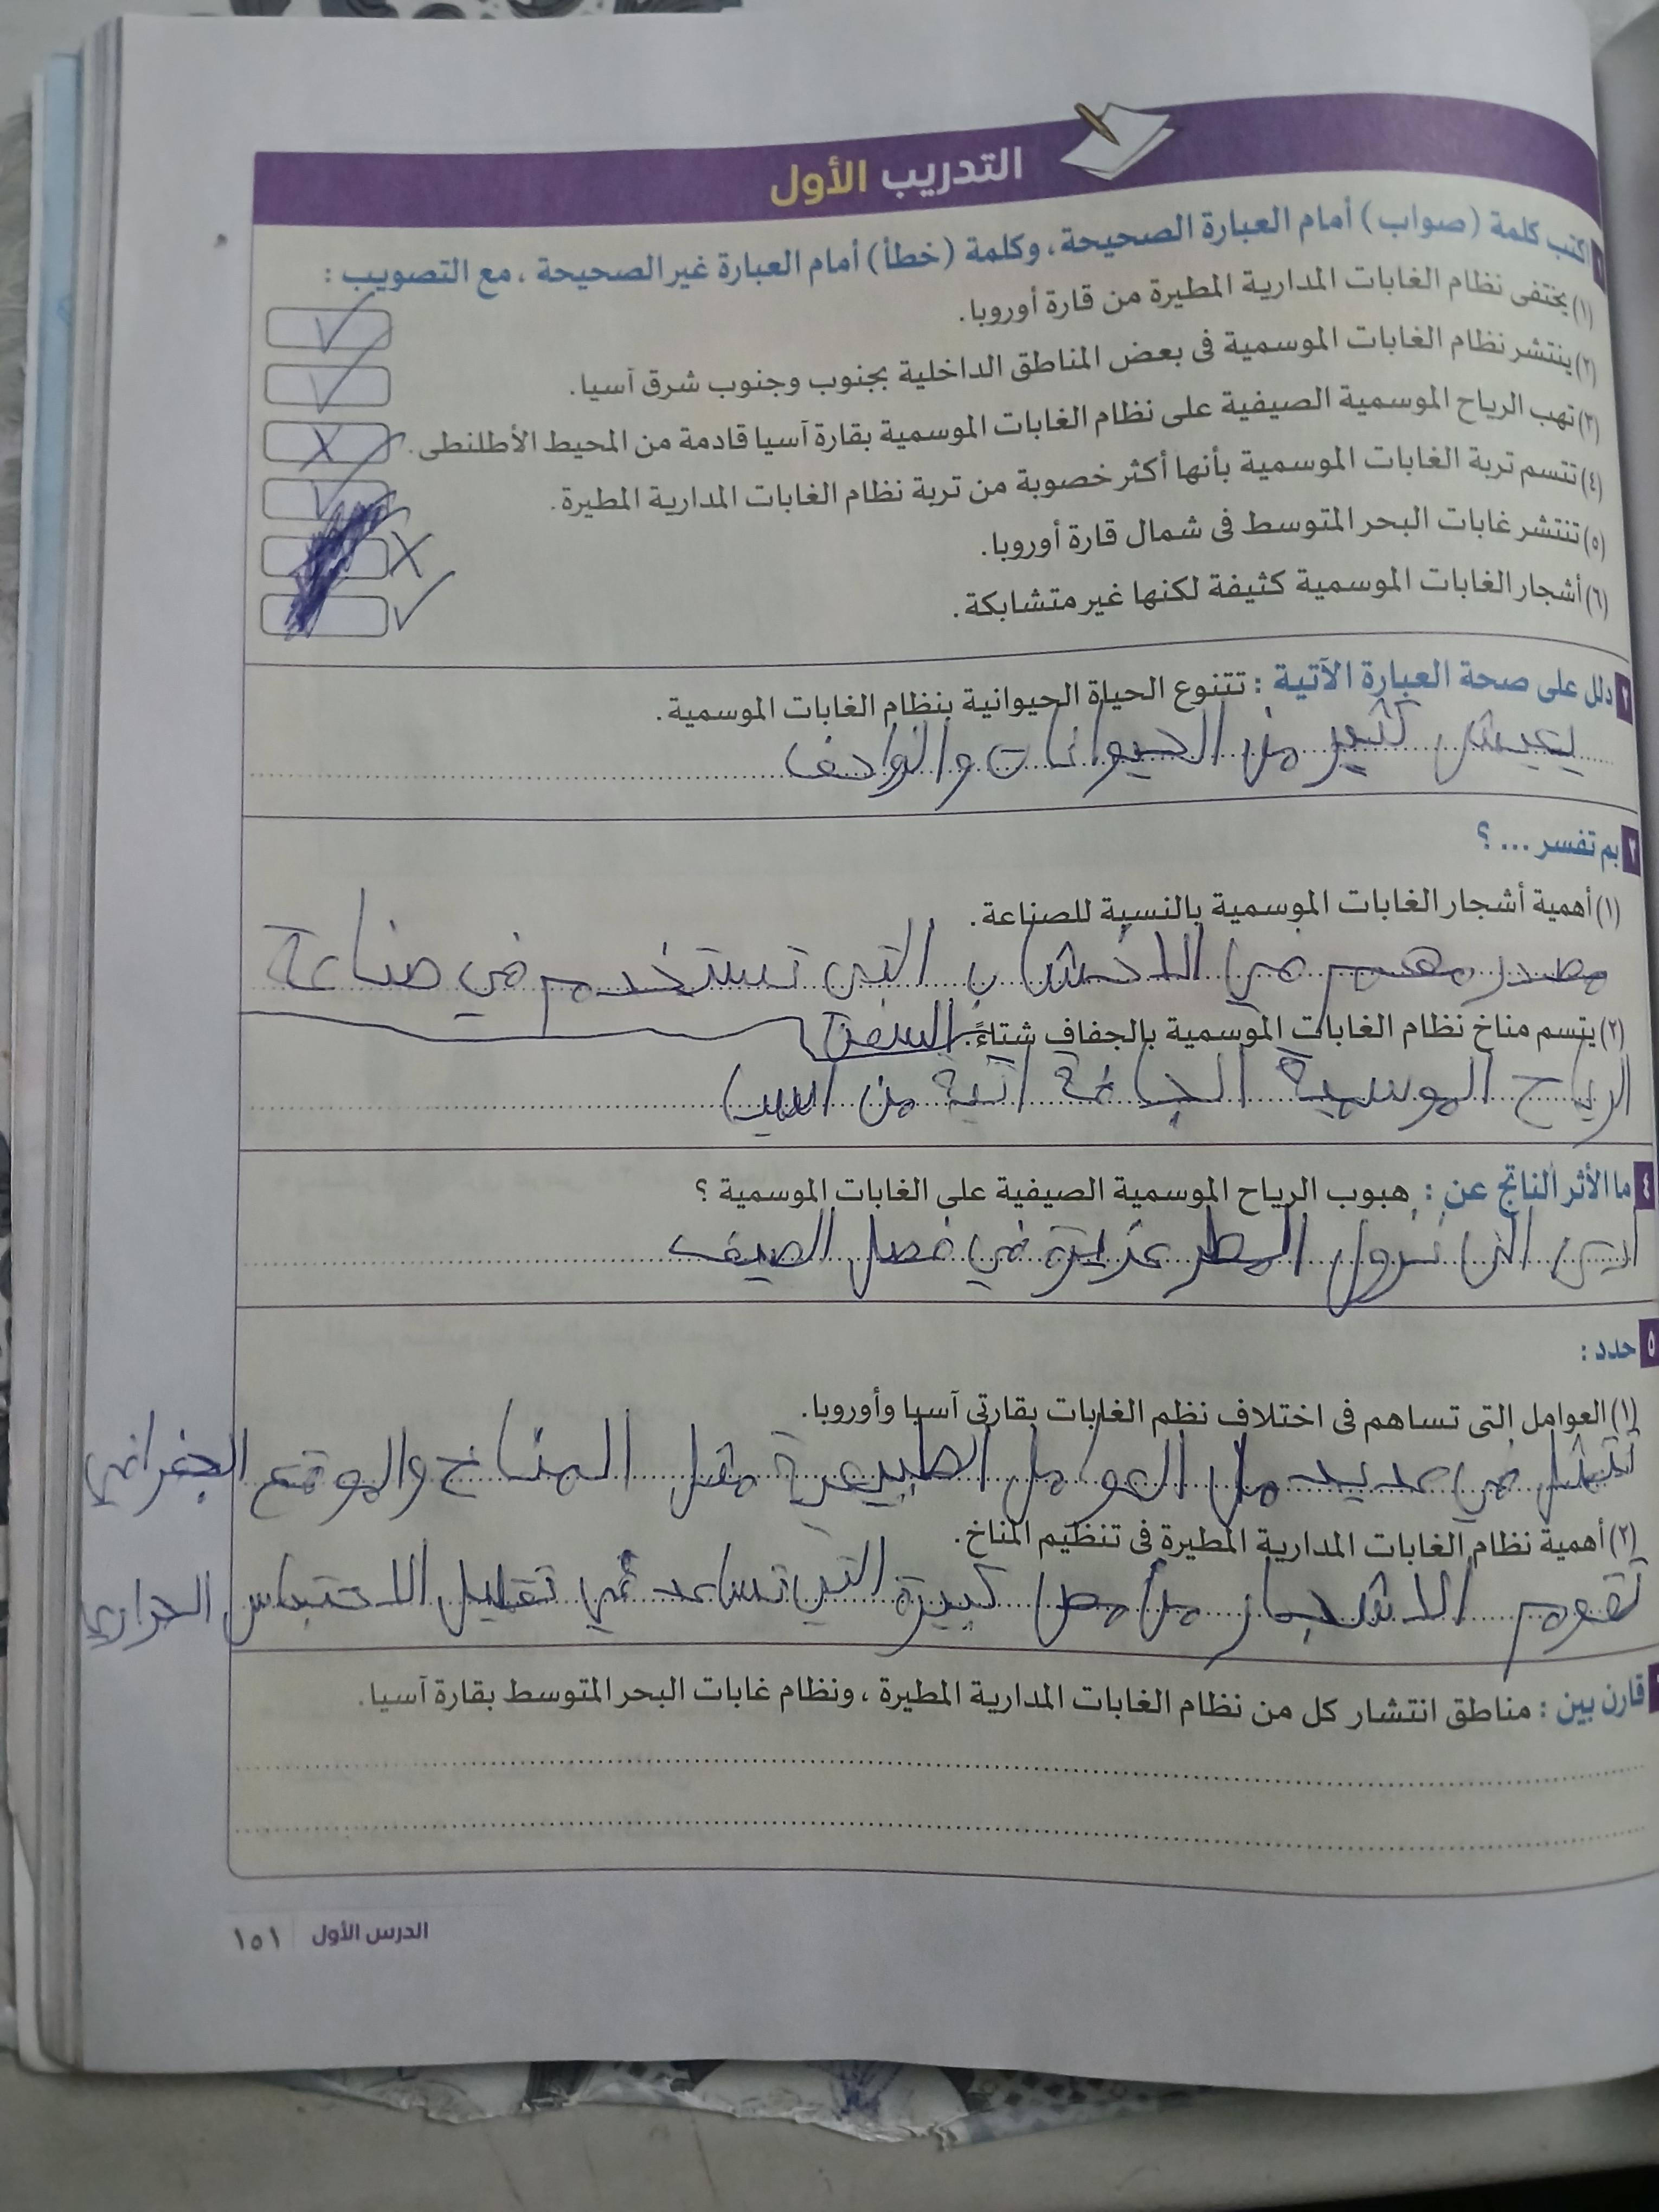 التدريب الأول
١ اكتب كلمة (صواب) أمام العبارة الصحيحة، وكلمة (خطأ) أمام العبارة غير الصحيحة، مع التصويب :
(١) يختفى نظام الغابات المدارية المطيرة من قارة أوروبا. ✓
(٢) ينتشر نظام الغابات الموسمية فى بعض المناطق الداخلية بجنوب وجنوب شرق آسيا. ✓
(٣) تهب الرياح الموسمية الصيفية على نظام الغابات الموسمية بقارة آسيا قادمة من المحيط الأطلنطى. X
(٤) تتسم تربة الغابات الموسمية بأنها أكثر خصوبة من تربة نظام الغابات المدارية المطيرة. ✓
(٥) تنتشر غابات البحر المتوسط فى شمال قارة أوروبا. X
(٦) أشجار الغابات الموسمية كثيفة لكنها غير متشابكة. ✓
٢ دلل على صحة العبارة الآتية : تتنوع الحياة الحيوانية بنظام الغابات الموسمية.
يعيش كثير من الحيوانات والزواحف
٣ بم تفسر ... ؟
(١) أهمية أشجار الغابات الموسمية بالنسبة للصناعة.
مصدر مهم من الاخشاب التي تستخدم في صناعة
السفن
(٢) يتسم مناخ نظام الغابات الموسمية بالجفاف شتاءً.
الرياح الموسمية الجافة اتية من اسيا
٤ ما الأثر الناتج عن : هبوب الرياح الموسمية الصيفية على الغابات الموسمية ؟
الى نزول المطر غزيرة في فصل الصيف
٥ حدد :
(١) العوامل التى تساهم فى اختلاف نظم الغابات بقارتى آسيا وأوروبا.
تتمثل في عديد من العوامل الطبيعية مثل المناخ والموقع الجغرافي
(٢) أهمية نظام الغابات المدارية المطيرة فى تنظيم المناخ.
تقوم الاشجار من مص كبيرة التي تساعد في تقليل الاحتباس الحراري
قارن بين : مناطق انتشار كل من نظام الغابات المدارية المطيرة ، ونظام غابات البحر المتوسط بقارة آسيا.
الدرس الأول ١٥١